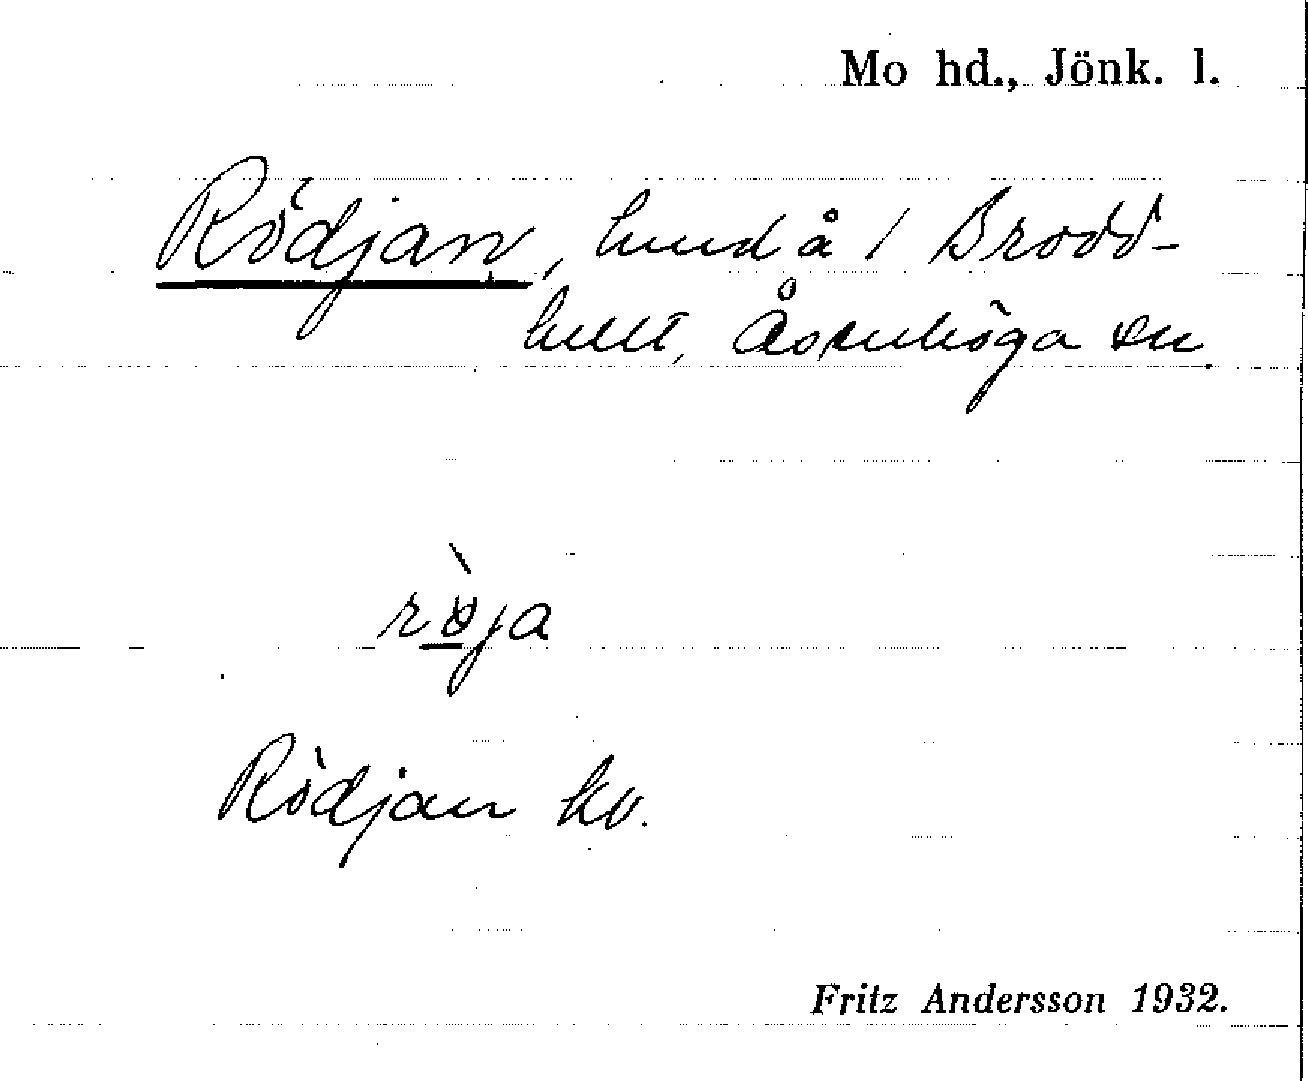 Mo hd., Jönk. l.
Rödjan, lund å / Brodd-
hult, Åsenhöga sn.
rø̀ja
Rödjan kv.
Fritz Andersson 1932.